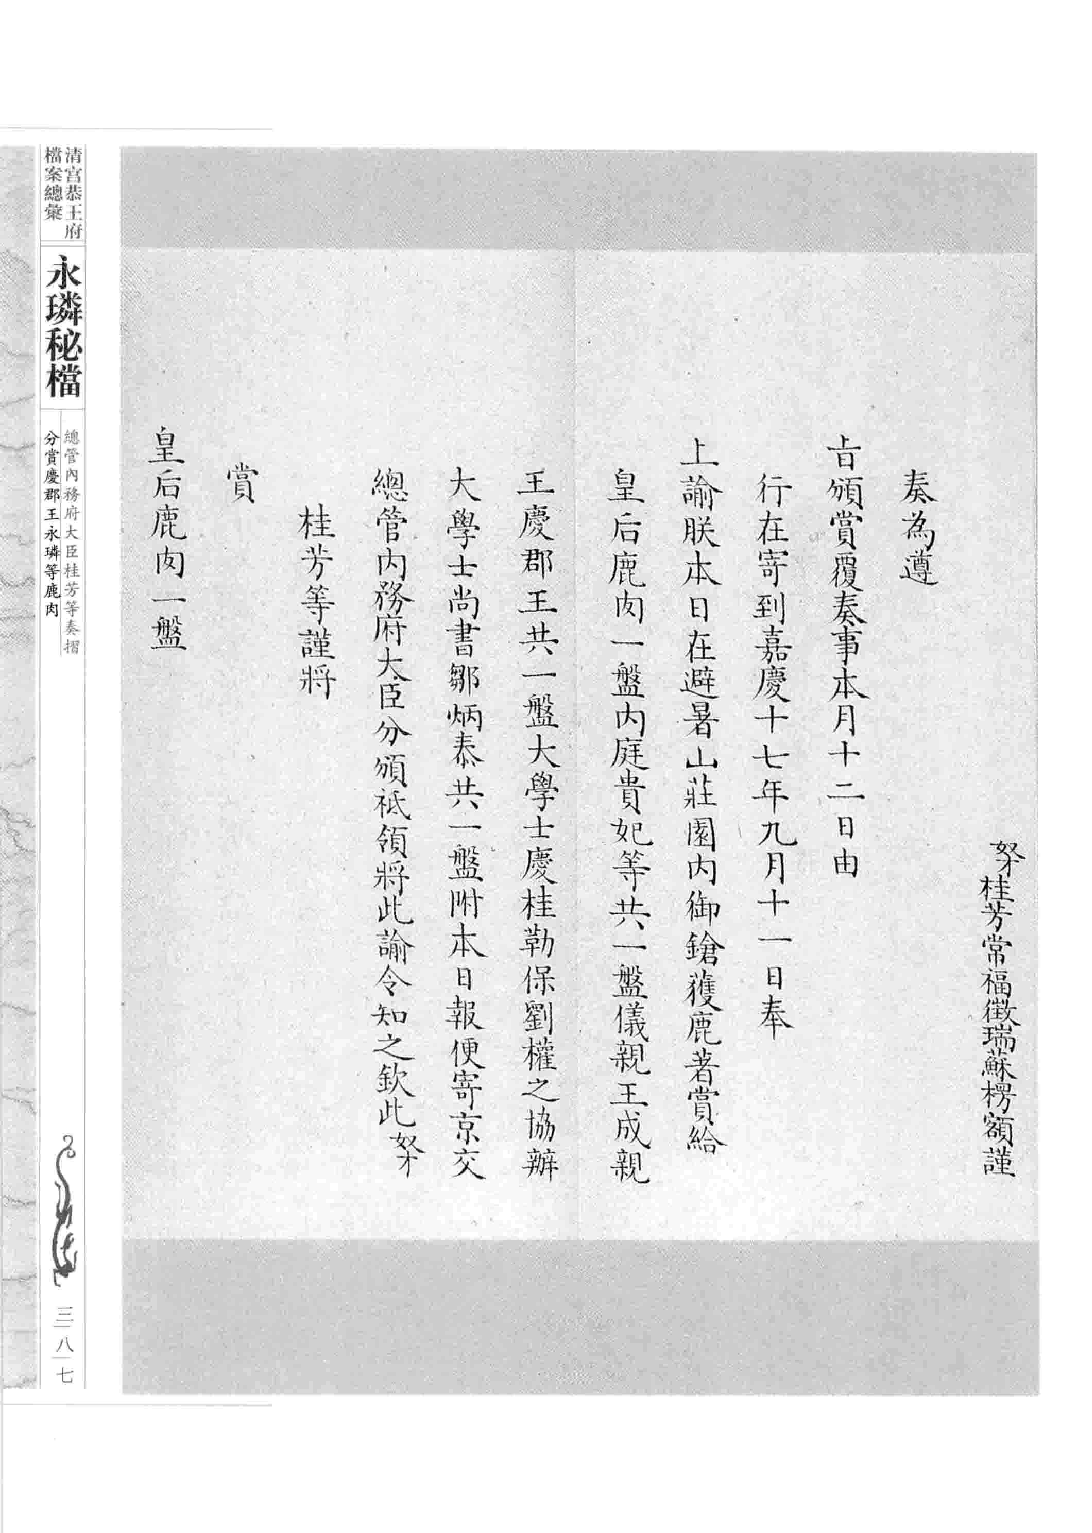 奴才桂芳常福徵瑞蘇楞額謹
奏為遵
旨頒賞覆奏事本月十二日由
行在寄到嘉慶十七年九月十一日奉
上諭朕本日在避暑山莊園內御鎗獲鹿著賞給
皇后鹿肉一盤內庭貴妃等共一盤儀親王成親
王慶郡王共一盤大學士慶桂勒保劉權之協辦
大學士尚書鄒炳泰共一盤附本日報便寄京交
總管內務府大臣分頒祗領將此諭令知之欽此奴才
桂芳等謹將
賞
皇后鹿肉一盤
清宮恭王府
檔案總彙
永璘秘檔
總管內務府大臣桂芳等奏摺
分賞慶郡王永璘等鹿肉
三八七